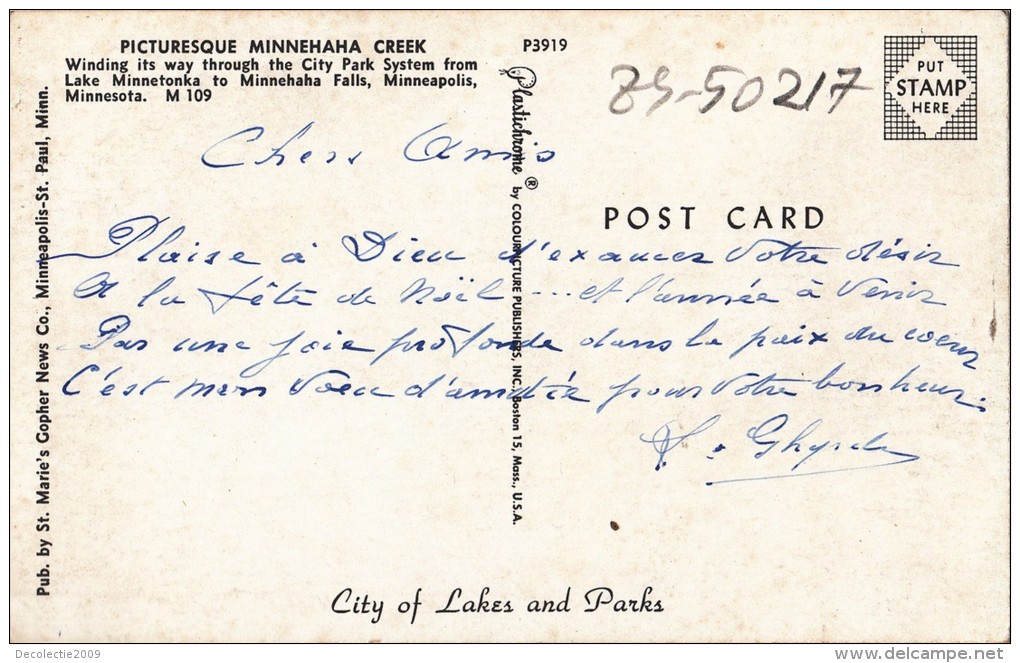 PICTURESQUE MINNEHAHA CREEK
Winding its way through the City Park System from
Lake Minnetonka to Minnehaha Falls, Minneapolis,
Minnesota. M 109
P3919
ZS-50217
PUT
STAMP
HERE
Pub. by St. Marie's Gopher News Co., Minneapolis-St. Paul, Minn.
Plastichrome ® by COLOURPICTURE PUBLISHERS, INC., Boston 15, Mass., U.S.A.
POST CARD
Chers Amis
Plaise à Dieu d'exaucer Votre désir
A la fête de Noël ... et l'année à Venir
Par une joie profonde dans la paix du coeur
C'est mon Voeu d'amitié pour Votre bonheur.
City of Lakes and Parks
Decolectie2009
www.delcampe.net